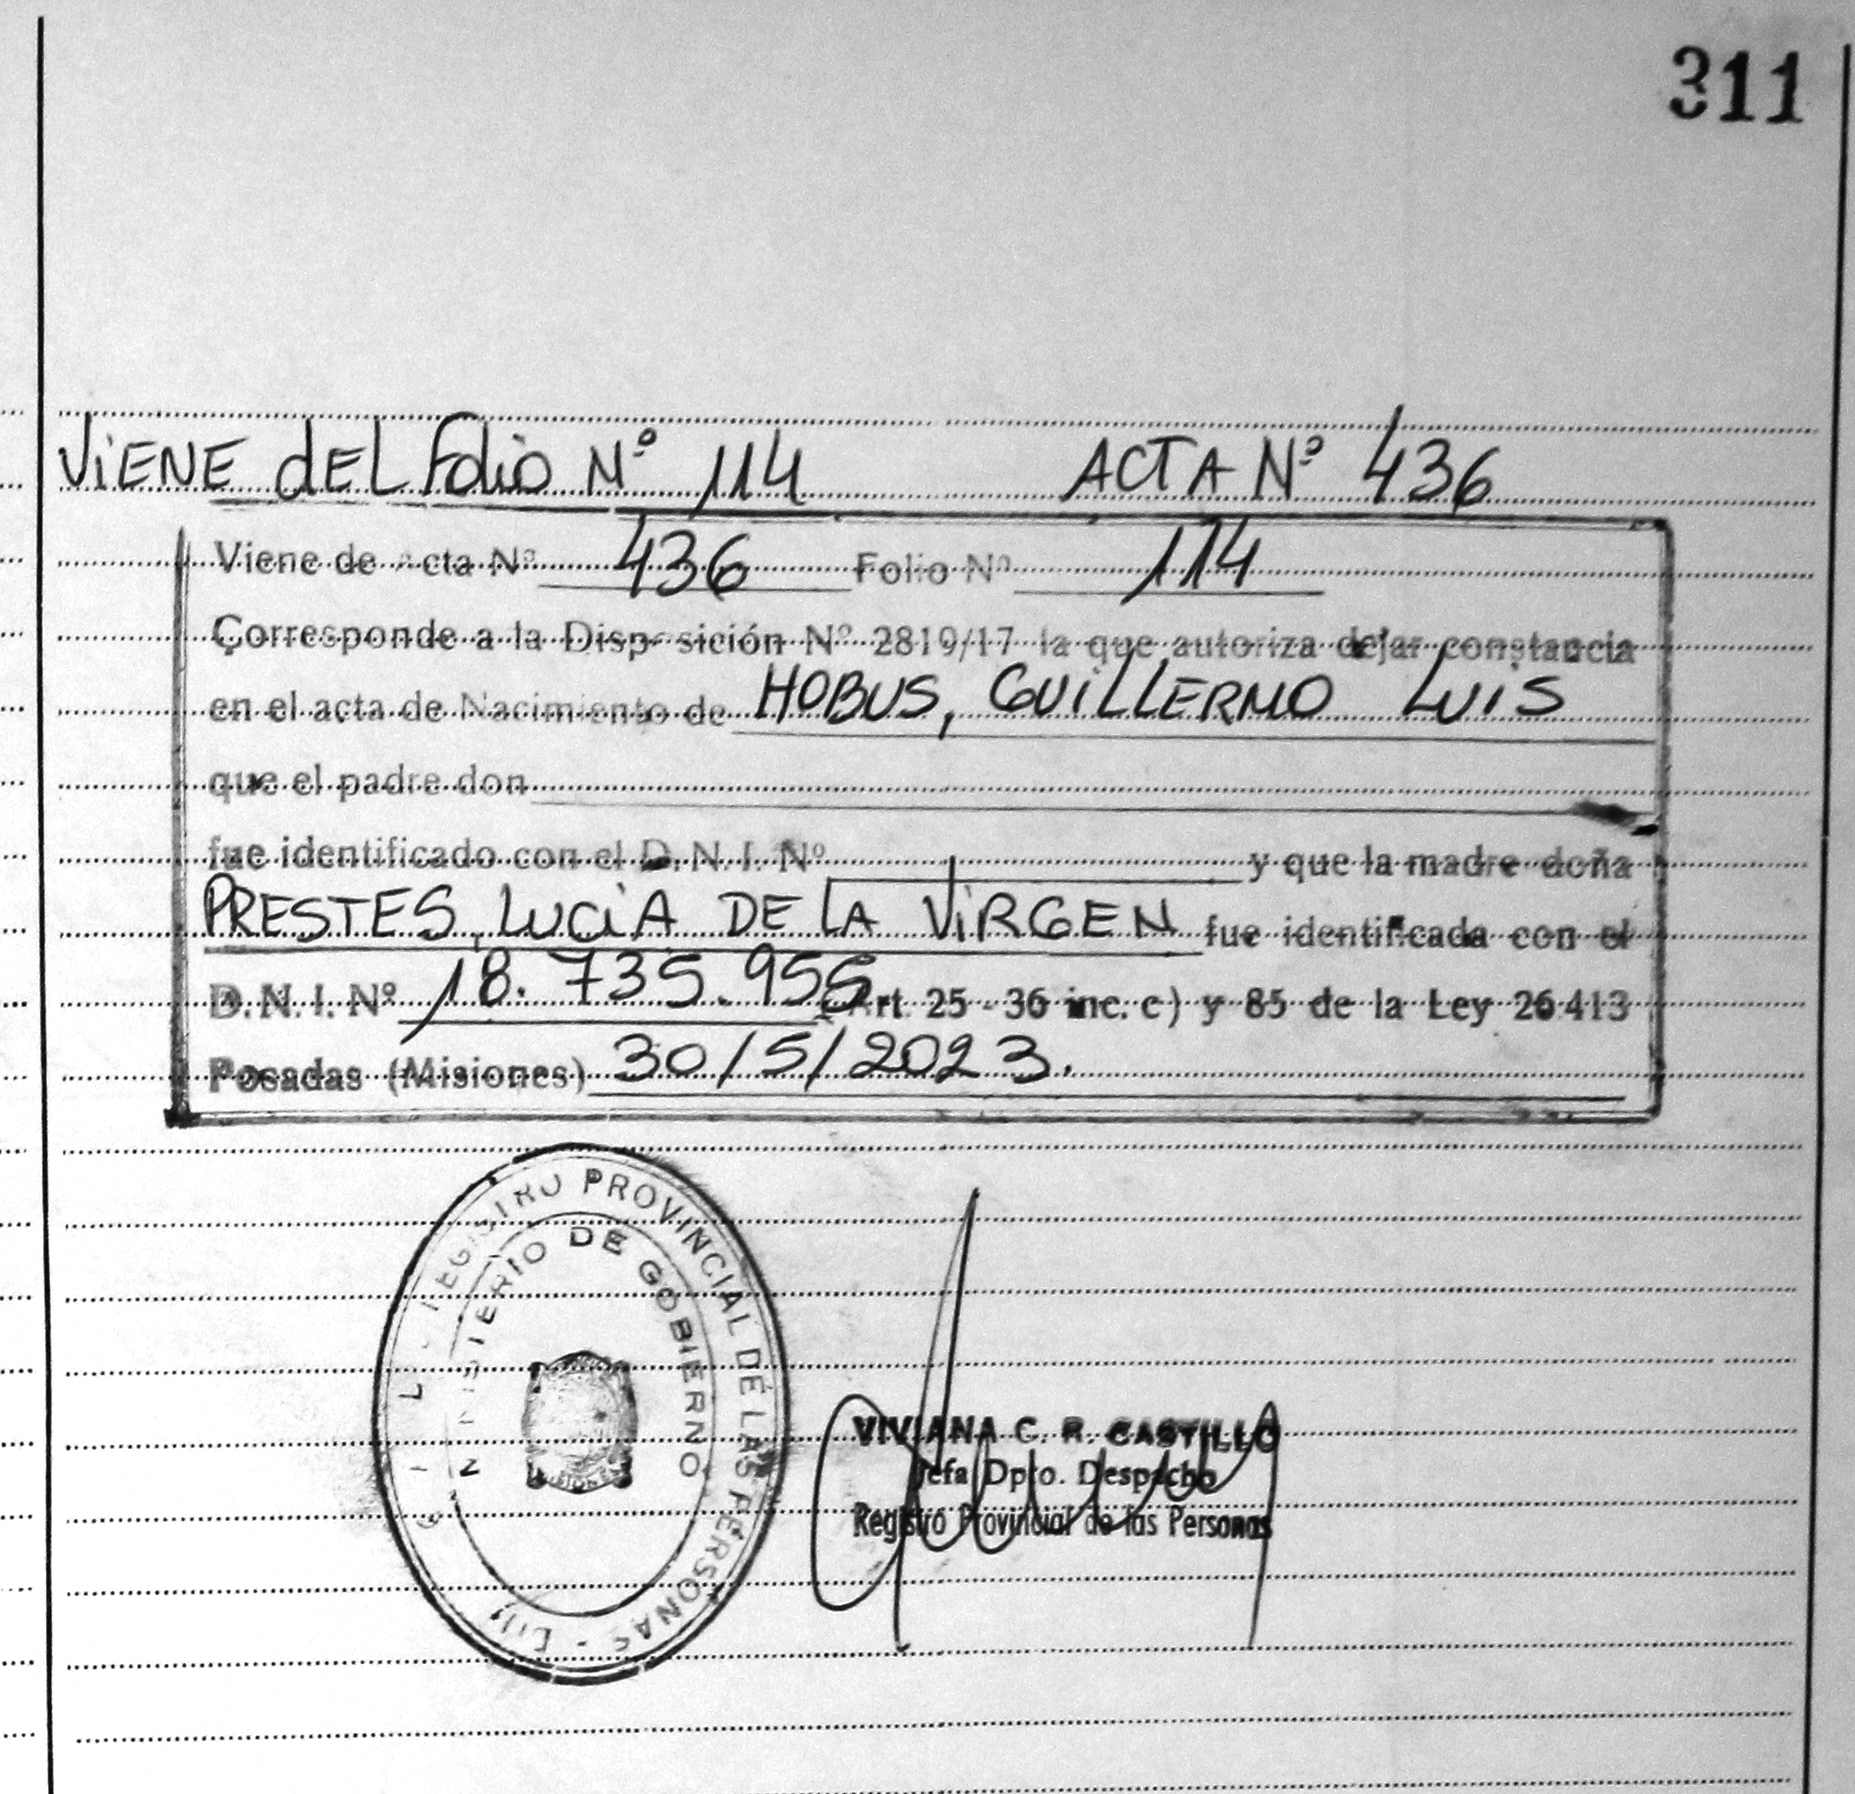 311
ViENE dEL Folio Nº 114 ACTA Nº 436
Viene de Acta Nº 436 Folio Nº 114
Corresponde a la Disposición Nº 2819/17 la que autoriza dejar constancia
en el acta de Nacimiento de HOBUS, GUiLLERMO LUiS
que el padre don
fue identificado con el D. N. I. Nº y que la madre doña
PRESTES, LUCiA DE LA ViRGEN fue identificada con el
D. N. I. Nº 18.735.955 (Art. 25 - 36 inc. c) y 85 de la Ley 26.413
Posadas (Misiones) 30/5/2023.
REGISTRO PROVINCIAL DE LAS PERSONAS -
MINISTERIO DE GOBIERNO
MISIONES
VIVIANA C. R. CASTILLO
Jefa Dpto. Despacho
Registro Provincial de las Personas